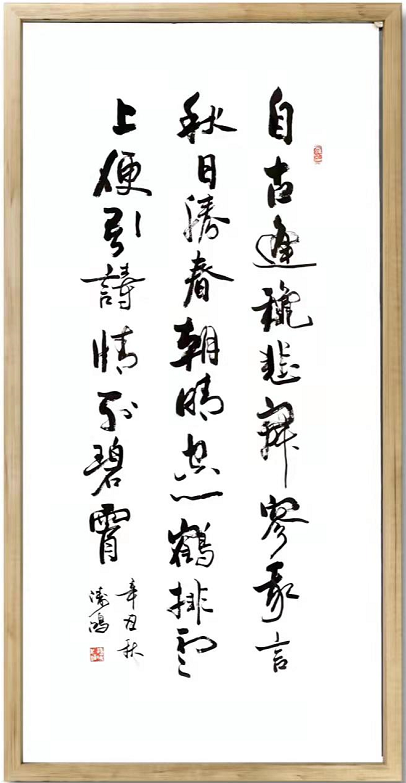 自古逢穐悲寂寥我言
秋日勝春朝晴空一鶴排雲
上便引詩情到碧霄
辛丑秋